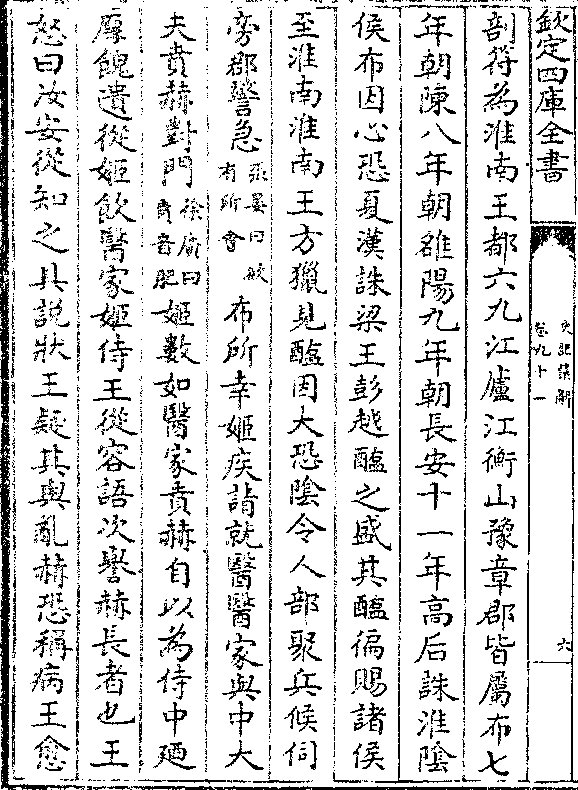 欽定四庫全書
史記集解
卷九十一
六
剖符為淮南王都六九江廬江衡山豫章郡皆屬布七
年朝陳八年朝雒陽九年朝長安十一年高后誅淮陰
侯布因心恐夏漢誅梁王彭越醢之盛其醢徧賜諸侯
至淮南淮南王方獵見醢因大恐陰令人部聚兵候伺
旁郡警急張晏曰欲有所會布所幸姬疾詣就醫醫家與中大
夫賁赫對門徐廣曰賁音肥姬數如醫家賁赫自以為侍中廼
厚餽遺從姬飲醫家姬侍王從容語次譽赫長者也王
怒曰汝安從知之具説狀王疑其與亂赫恐稱病王愈